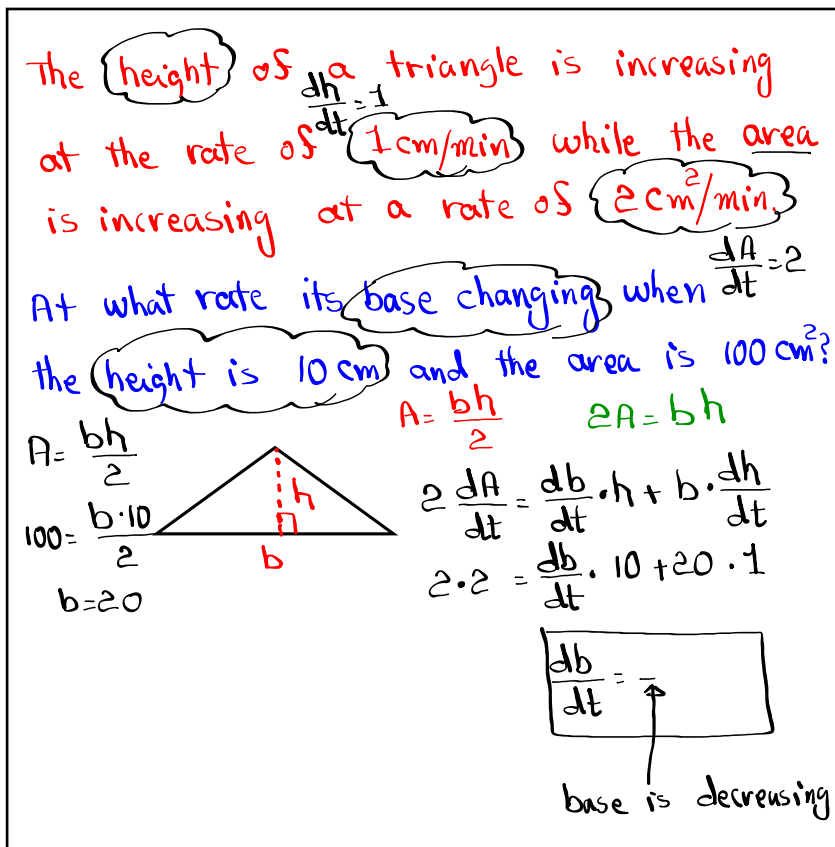 The height of a triangle is increasing
dh/dt = 1
at the rate of 1 cm/min while the area
is increasing at a rate of 2 cm²/min.
dA/dt = 2
At what rate its base changing when
the height is 10 cm and the area is 100 cm²?
A = bh/2
2A = bh
A = bh/2
h
b
100 = b·10/2
b=20
2 dA/dt = db/dt · h + b · dh/dt
2·2 = db/dt · 10 + 20 · 1
db/dt = -
base is decreasing